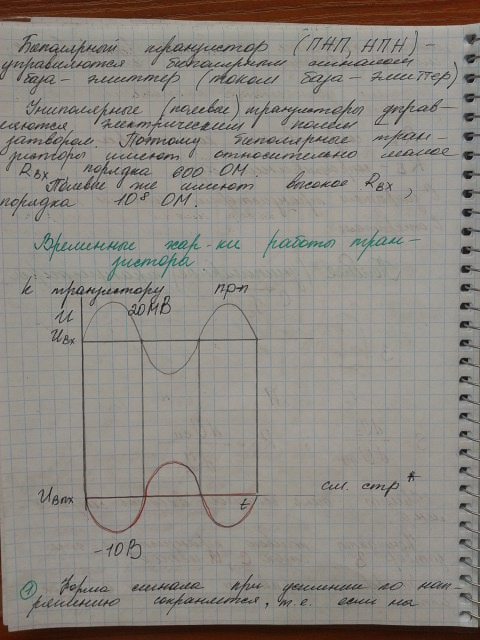 Биполярный транзистор (ПНП, НПН) -
управляются биполярным сигналом
база - эмиттер (током база - эмиттер)
Униполярные (полевые) транзисторы управ-
ляются электрическим полем
затвором. Поэтому биполярные тран-
зисторы имеют относительно малое
Rвх порядка 600 ОМ.
Полевые же имеют высокое Rвх,
порядка 10⁸ ОМ.
Временные хар-ки работы тран-
зистора.
К транзистору п-р-п
U 20МВ
Uвх
Uвых t
см. стр *
-10В
1 Форма сигнала при усилении по нап-
ряжению сохраняется, т.е. если на